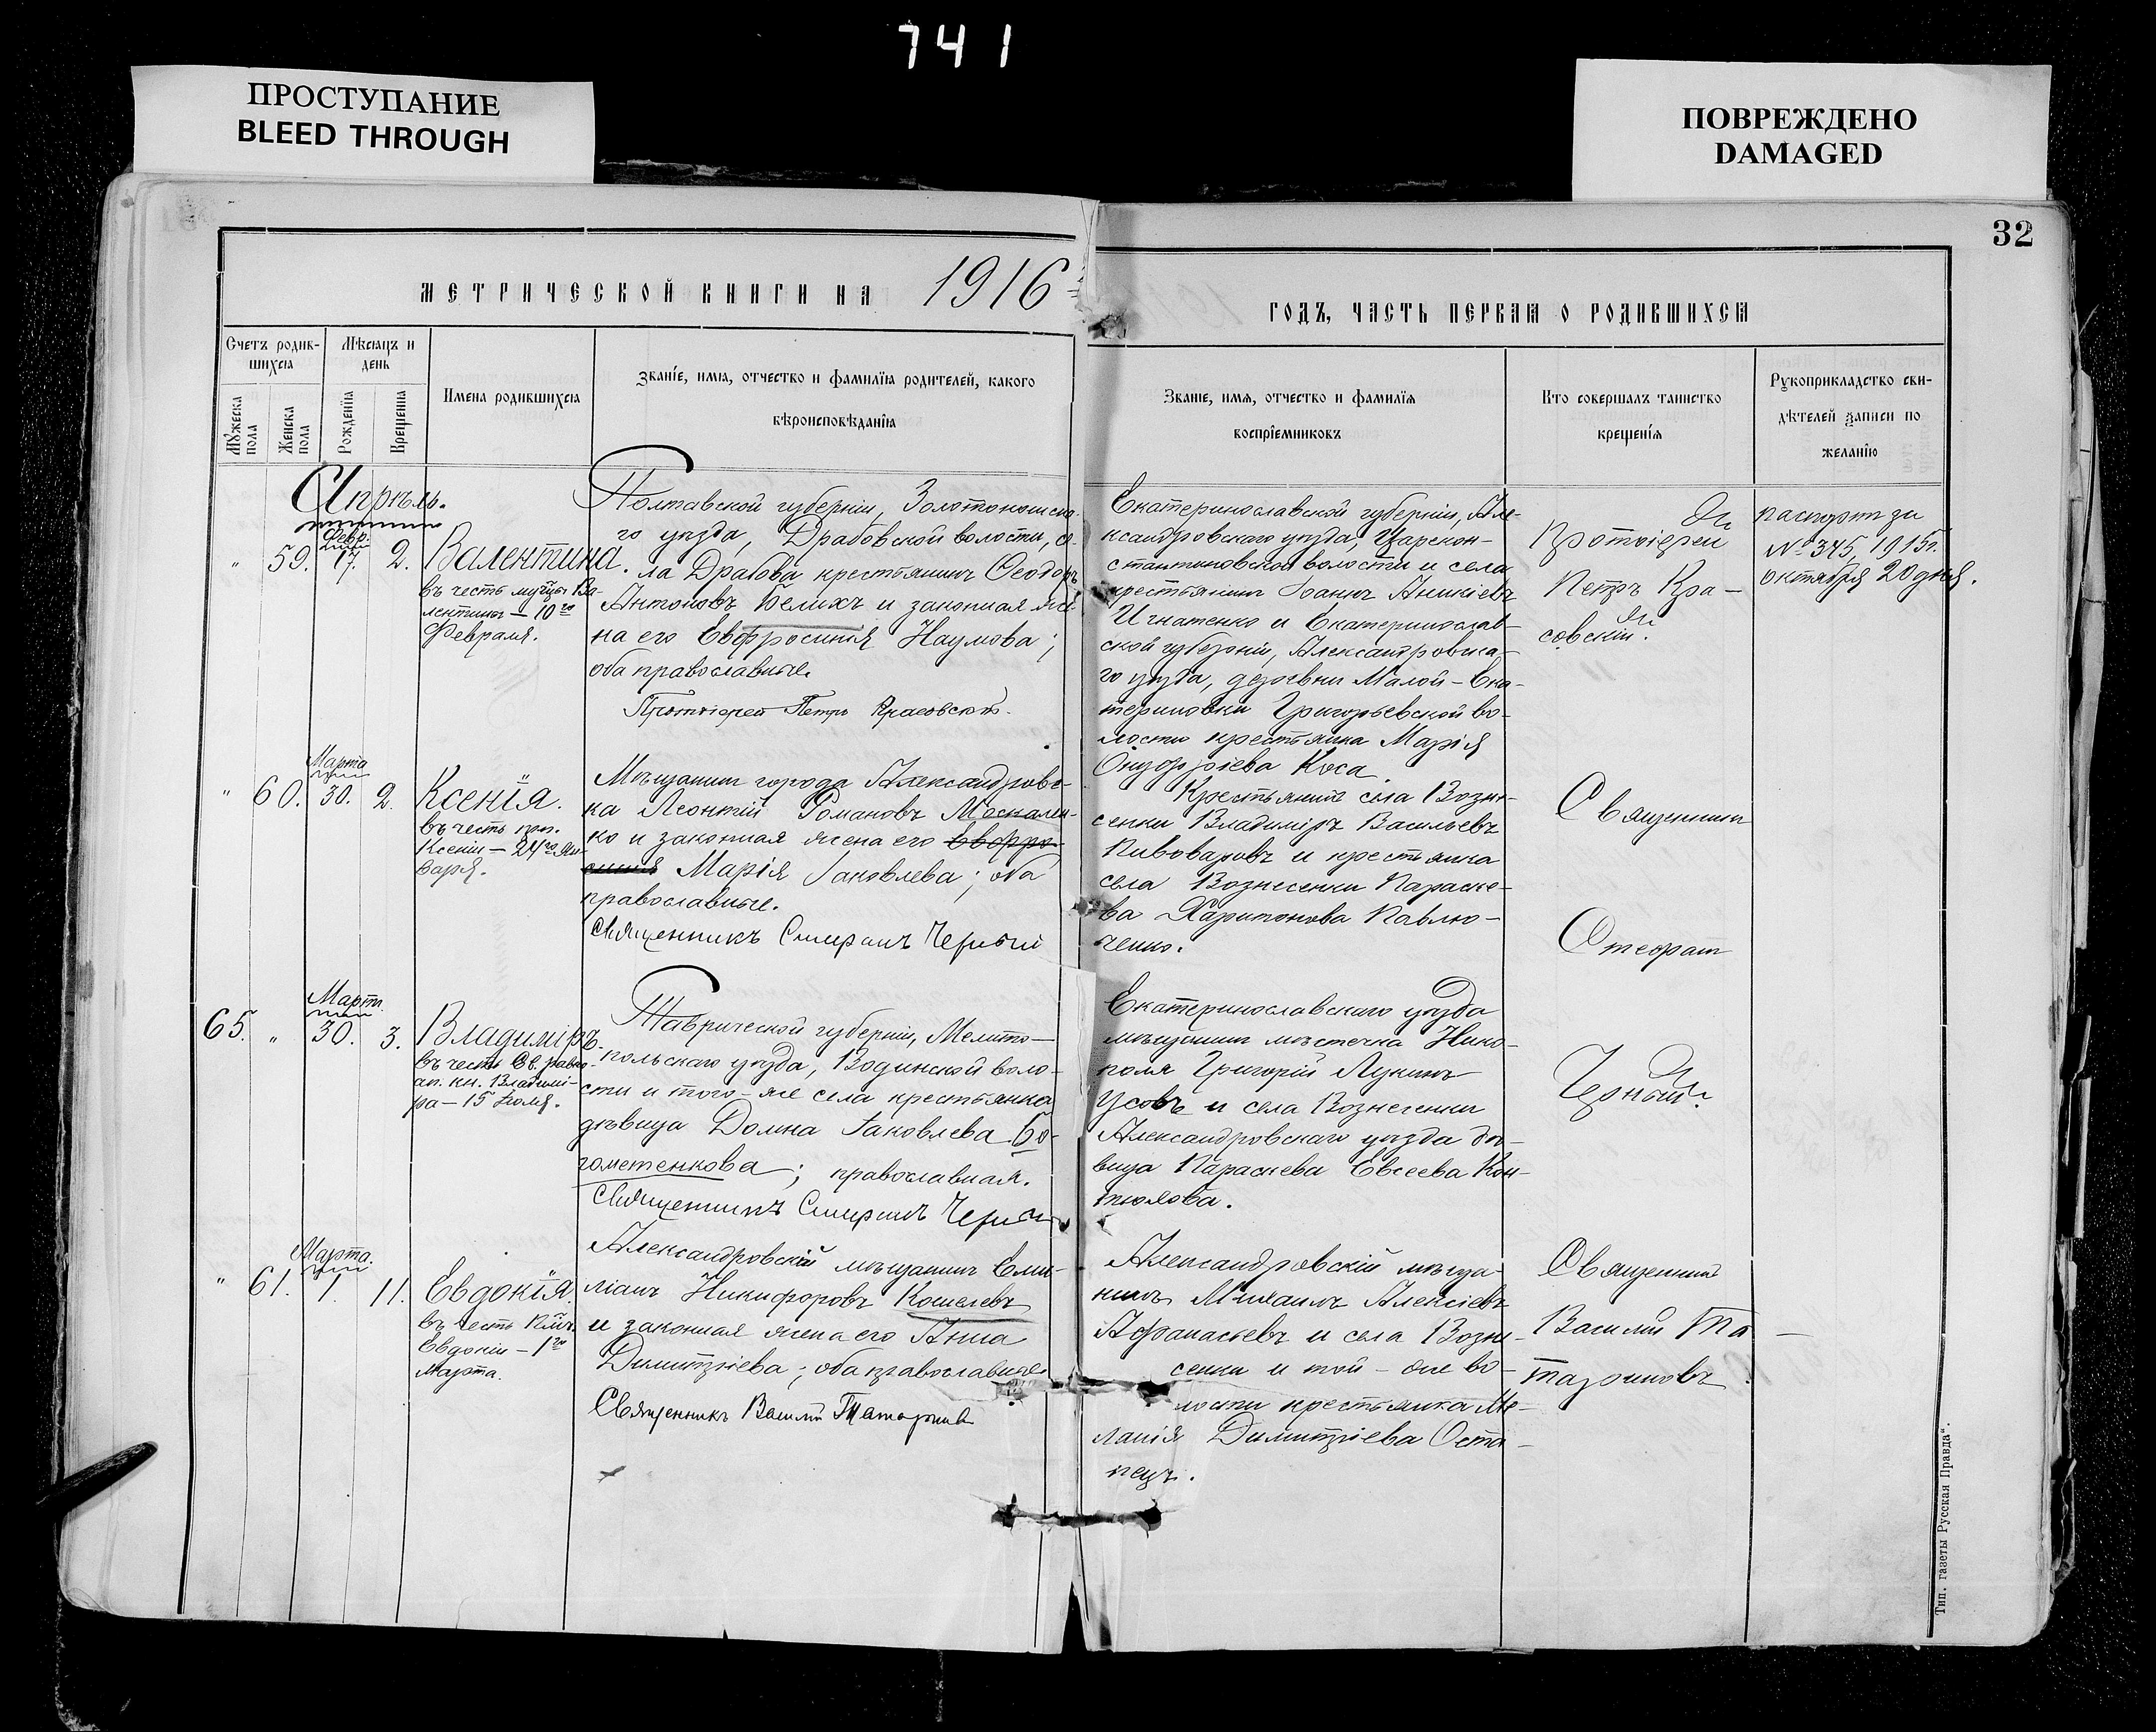 741
ПРОСТУПАНИЕ
BLEED THROUGH
ПОВРЕЖДЕНО
DAMAGED
32
МЕТРИЧЕСКОЙ КНИГИ НА 1916 г.
ГОДЪ, ЧАСТЬ ПЕРВАЯ О РОДИВШИХСЯ
Счетъ родив-
шихся
Мѣсяцъ и
день
Мужеска
пола
Женска
пола
Рожденія
Крещенія
Имена родившихся
Званіе, имя, отчество и фамилія родителей, какого
вѣроисповѣданія
Званіе, имя, отчество и фамилія
воспріемниковъ
Кто совершалъ таинство
крещенія
Рукоприкладство сви-
дѣтелей записи по
желанію
Апрѣль.
" 59.
Февр.
17. 2.
Валентина.
въ честь муч-цы Ва-
лентины — 10го
Февраля.
Полтавской губерніи, Золотоношска-
го уѣзда, Драбовской волости, се-
ла Драбова крестьянинъ Ѳеодоръ
Антоновъ Белихъ и законная же-
на его Евфросинія Наумова;
оба православные.
Протоіерей Петръ Красовскій.
Екатеринославской губерніи, Але-
ксандровскаго уѣзда, Царекон-
стантиновской волости и села
крестьянинъ Іоаннъ Аникіевъ
Игнатенко и Екатеринослав-
ской губерніи, Александровска-
го уѣзда, деревни Малой-Ека-
териновки Григорьевской во-
лости крестьянка Марія
Онуфріева Коса.
Протоіерей
Петръ Кра-
совскій.
паспортъ за
№ 345, 1915г.
октября 20 дня.
" 60.
Марта
30. 2.
Ксенія.
въ честь прп.
Ксеніи — 24го Ян-
варя.
Мѣщанинъ города Александровс-
ка Леонтій Романовъ Москален-
ко и законная жена его Евфро-
синія Марія Іаковлева; оба
православные.
Священникъ Стефанъ Черный
Крестьянинъ села Возне-
сенки Владиміръ Васильевъ
Пивоваровъ и крестьянка
села Вознесенки Параске-
ва Харитонова Павлю-
ченко.
Священникъ
Стефанъ
65. "
Марта
30. 3.
Владиміръ.
въ честь Св. равно-
ап. кн. Владимі-
ра — 15 Іюля.
Таврической губерніи, Мелито-
польскаго уѣзда, Водинской воло-
сти и того-же села крестьянка
дѣвица Домна Іаковлева Бо-
гометенкова; православная.
Священникъ Стефанъ Черный
Екатеринославскаго уѣзда
мѣщанинъ мѣстечка Нико-
поля Григорій Лукинъ
Усовъ и села Вознесенки
Александровскаго уѣзда дѣ-
вица Параскева Евсеева Кон-
тюлова.
Черный.
" 61.
Марта.
1. 11.
Евдокія.
въ честь прмч.
Евдокіи — 1го
Марта.
Александровскій мѣщанинъ Еми-
ліанъ Никифоровъ Кошелевъ
и законная жена его Анна
Димитріева; оба православные.
Священникъ Василій Татариновъ
Александровскій мѣща-
нинъ Михаилъ Алексіевъ
Афанасьевъ и села Возне-
сенки и той-же во-
лости крестьянка Ме-
ланія Димитріева Оста-
пецъ.
Священникъ
Василій Та-
тариновъ
Тип. газеты „Русская Правда“.